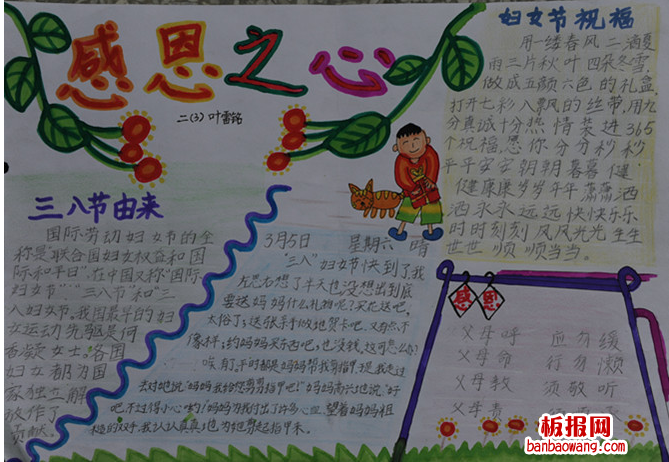 感恩之心
二(3) 叶雷铭
妇女节祝福
用一缕春风 二滴夏
雨三片秋叶 四朵冬雪,
做成五颜六色的礼盒
打开七彩八飘的丝带,用九
分真诚十分热情装进365
个祝福,愿你分分秒秒
平平安安朝朝暮暮健
健康康岁岁年年潇潇洒
洒永永远远快快乐乐
时时刻刻风风光光生生
世世顺顺当当。
三八节由来
国际劳动妇女节的全
称是联合国妇女权益和国
际和平日。在中国又称"国际
妇女节""三八节"和"三
八妇女节。我国最早的妇
女运动先驱是何
香凝女士。各国
妇女都为国
家独立解
放作了
贡献。
3月5日 星期六 晴
"三八"妇女节快到了,我
左思右想了半天也没想出到底
要送妈妈什么礼物呢?买花送吧,
太俗了;送张亲手做的贺卡吧,又有点不
像样;约妈妈买东西吧,也没钱。这可怎么办?
唉,有了,平时都是妈妈帮我剪指甲,
去对她说:"妈妈我给您剪剪指甲吧!"妈妈高兴地说:"好
吧,不过得小心哟!"妈妈为我付出了许多心血,望着妈妈粗
糙的双手,我认认真真地为她剪起指甲来。
感恩
父母呼 应勿缓
父母命 行勿懒
父母教 须敬听
父母责
板报网
banbaowang.com